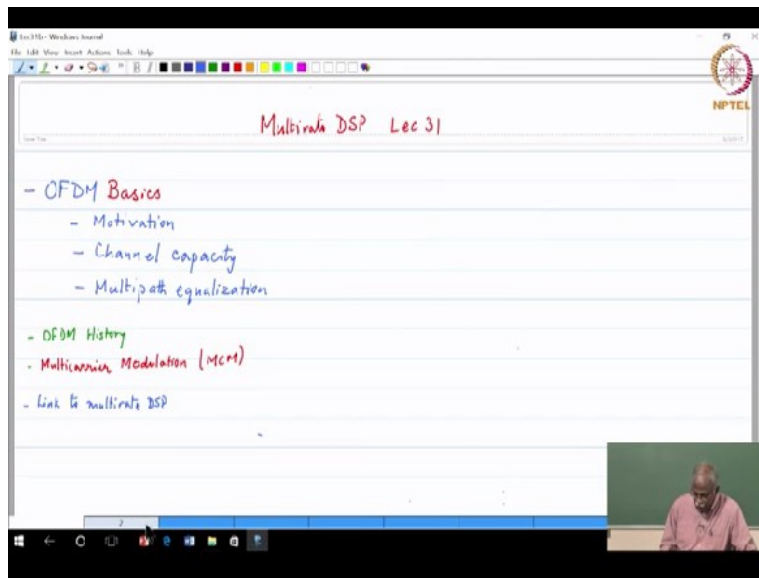 Lec31b - Windows Journal
File Edit View Insert Actions Tools Help
B I
NPTEL
Multirate DSP Lec 31
Note Title
- OFDM Basics
- Motivation
- Channel capacity
- Multipath equalization
- OFDM History
- Multicarrier Modulation (MCM)
- Link to multirate DSP
2